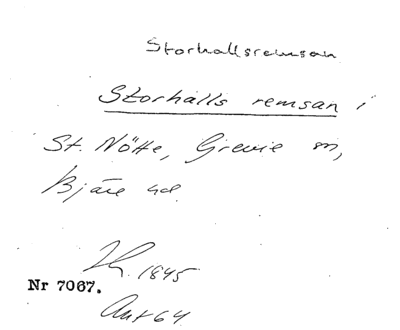 Storhallsremsan
Storhalls remsan i
St. Nötte, Grevie sn,
Bjäre hd.
1845
Nr 7067.
Ant 64.